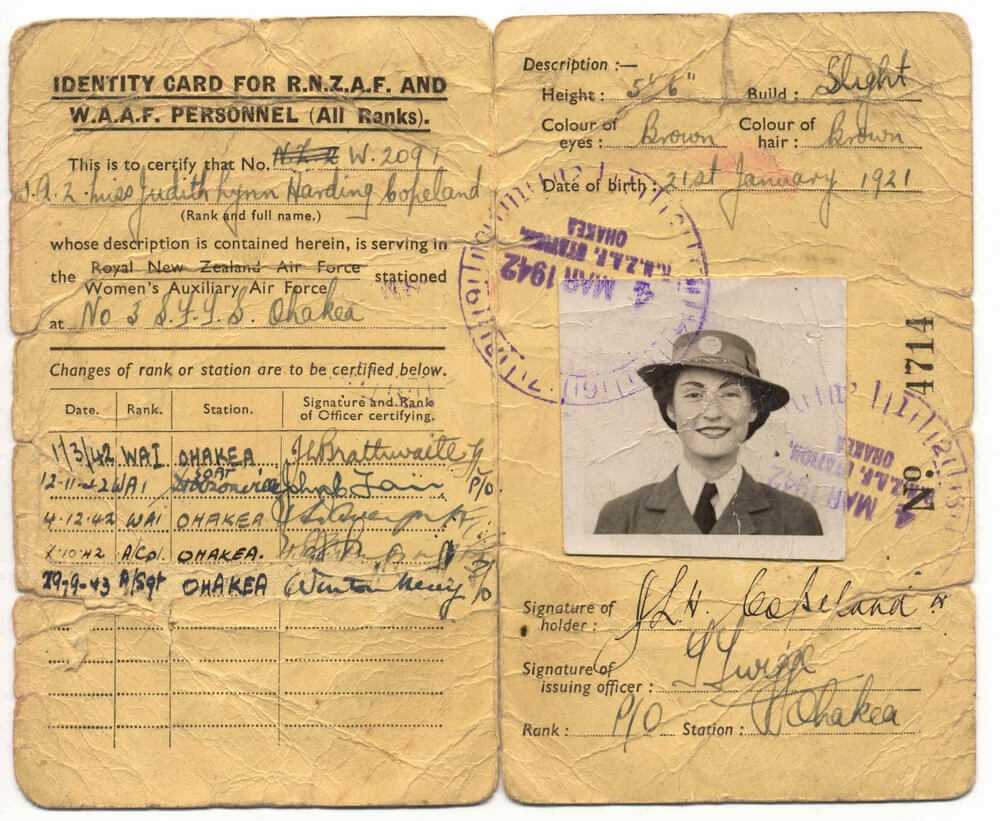 IDENTITY CARD FOR R.N.Z.A.F. AND
W.A.A.F. PERSONNEL (All Ranks).
This is to certify that No. N.Z. W. 2091
Miss Judith Lynn Harding Copeland
(Rank and full name.)
whose description is contained herein, is serving in
the Royal New Zealand Air Force stationed
Women's Auxiliary Air Force
at No 3 S.F.T.S. Ohakea
Changes of rank or station are to be certified below.
Date. Rank. Station. Signature and Rank of Officer certifying.
1/3/42 WAI OHAKEA
12-11-42 WAI P/O
4-12-42 WAI OHAKEA
A/Cpl. OHAKEA.
29-9-43 A/Sgt OHAKEA
Description :—
Height : 5' 6" Build : Slight
Colour of eyes : Brown Colour of hair : Brown
Date of birth : 21st January 1921
R.N.Z.A.F. STATION,
OHAKEA
4 MAR 1942
No. 4714
R.N.Z.A.F. STATION,
OHAKEA
4 MAR 1942
Signature of holder : J L H. Copeland
Signature of issuing officer :
Rank : P/O Station : Ohakea